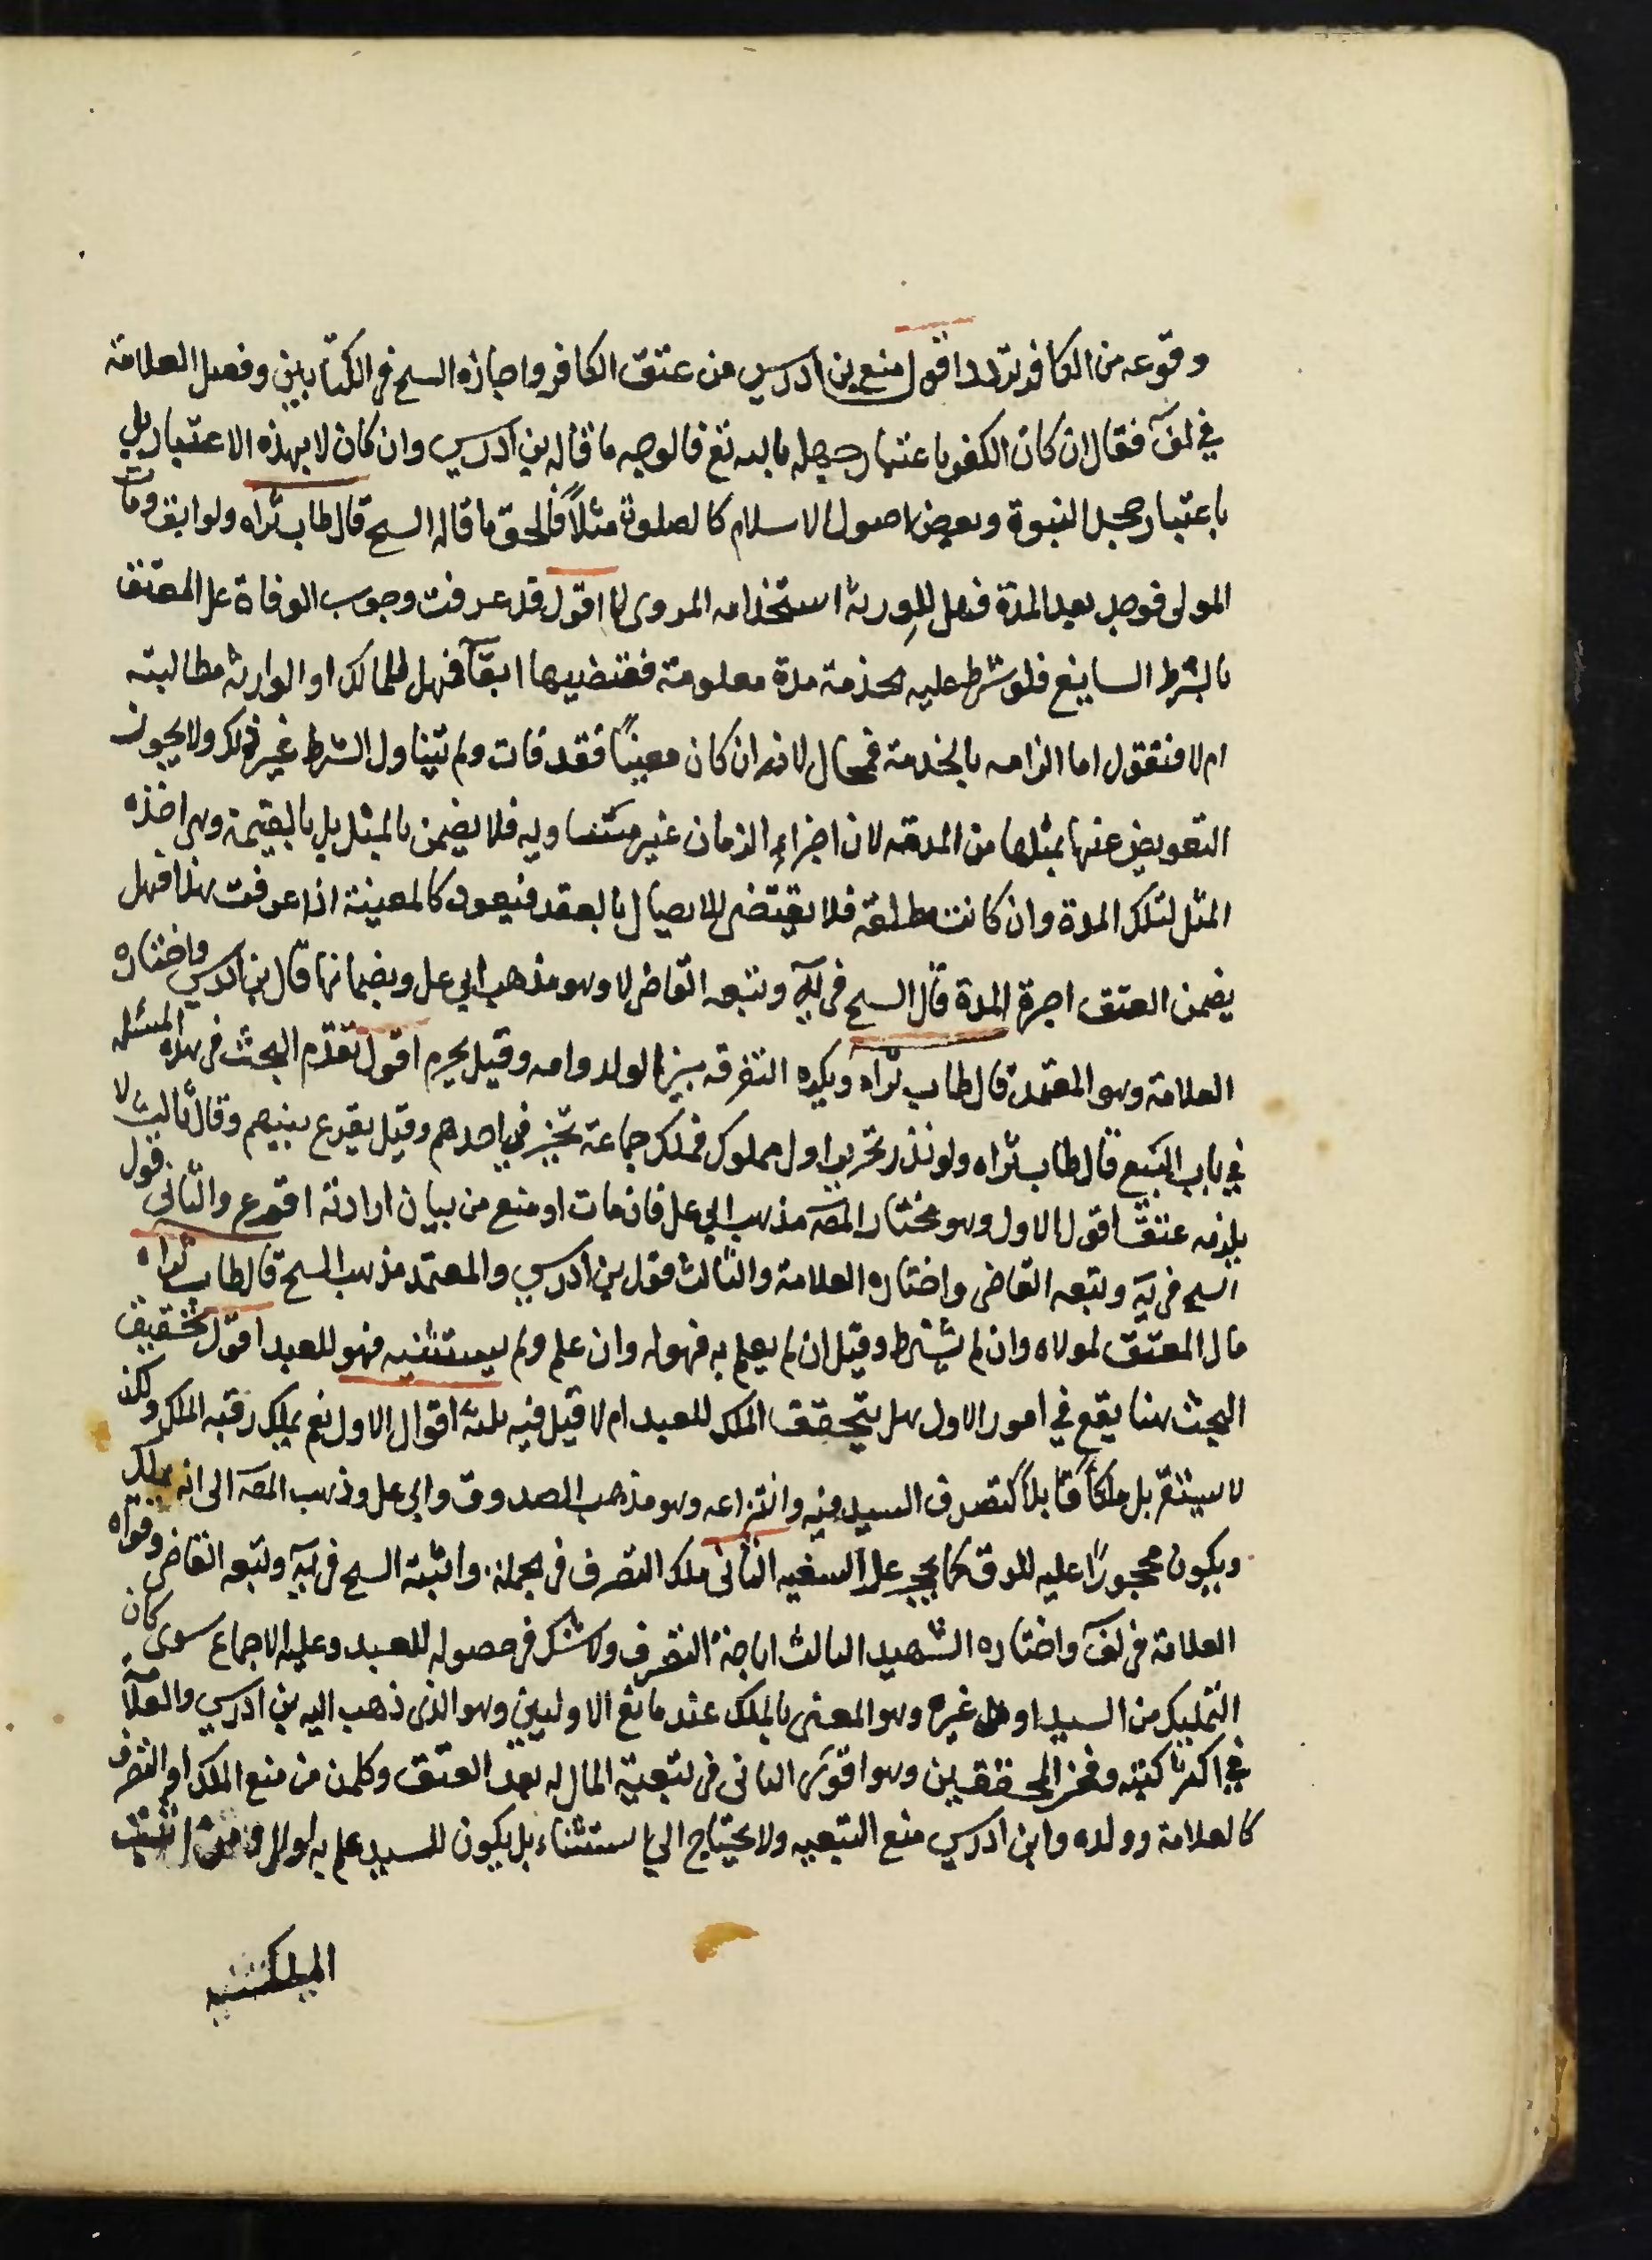 وقوعه من الكافر تردد اقول منع بن ادريس من عتق الكافر واجازه الشيخ في الكتابين وفصل العلامة
في لف فقال ان كان الكفر باعتبار جهله بالله تع فالوجه ما قاله بن ادريس وان كان لا بهذه الاعتبار بل
باعتبار جحد النبوة وبعض اصول الاسلام كالصلوة مثلاً فالحق ما قاله الشيخ قال طاب ثراه ولو ابق ومات
المولى فوجد بعد المدة فهل للورثة استخدامه المروى لا اقول قد عرفت وجوب الوفاة على المعتق
بالشرط السايغ فلو شرط عليه خدمة مدة معلومة فقضيها ابقاً فهل للمالك او الوارث مطالبته
ام لا فنقول اما الزامه بالخدمة فمحال لانه ان كان معيناً فقد فات ولم تيناول الشرط غير ذلك ولا يجوز
التعويض عنها بمثلها من المدة لان اجزاء الزمان غير متساويه فلا يضمن بالمثل بل بالقيمة وهى اخذه
المثل لتلك المدة وان كانت مطلقه فلا يقتضى الايصال بالعقد فيعود كالمعينة اذا عرفت هذا فهل
يضمن العتق اجرة المدة قال الشيخ في يه وتبعه القاضى لا وهو مذهب ابي على وبضمانها قال بن ادريس واختاره
العلامة وهو المعتمد قال طاب ثراه ويكره التفرقه بين الولد وامه وقيل يحرم اقول تقدم البحث في هذه المسئله
في باب البيع قال طاب ثراه ولو نذر تحرير اول مملوك فملك جماعة تخير في احدهم وقيل يقرع بينهم وقال ثالث لا
يلزمه عتق اقول الاول وهو مختار المصه مذهب ابي على فان مات او منع من بيان ارادته اقرع والثانى قول
الشيخ في يه وتبعه القاضى واختاره العلامة والثالث قول بن ادريس والمعتمد مذهب الشيخ قال طاب ثراه
مال المعتق لمولاه وان لم يشترط وقيل ان لم يعلم به فهوله وان علم ولم يستثنيه فهو للعبد اقول تحقيق
البحث هنا يقع في امور الاول هل يتحقق الملك للعبد ام لا قيل فيه ثلثة اقوال الاول نعم يملك رقبه الملك ولكن
لا يستقر بل ملكاً قابلاً لتصرف السيد فيه وانتزاعه وهو مذهب الصدوق وابي على وذهب المصه الى انه يملك
ويكون محجوراً عليه للرق كما يحجر على السفيه الثانى ملك التصرف في الجملة واثبته الشيخ في يه وتبعه القاضى وقواه
العلامة في لف واختاره الشهيد الثالث اباحة التصرف ولا شك في حصوله للعبد وعليه الاجماع سوى كان
التمليك من السيد او من غيره وهو المعنى بالملك عند مانع الاوليين وهو الذى ذهب اليه بن ادريس والعلامة
في اكثر كتبه وفخر المحققين وهو اقوى الثانى في تبعية المال له بعد العتق وكلمن منع الملك او التصرف
كالعلامة وولده وابن ادريس منع التبعيه ولا يحتاج الى استثناء بل يكون للسيد علم به اولا ومن اثبت